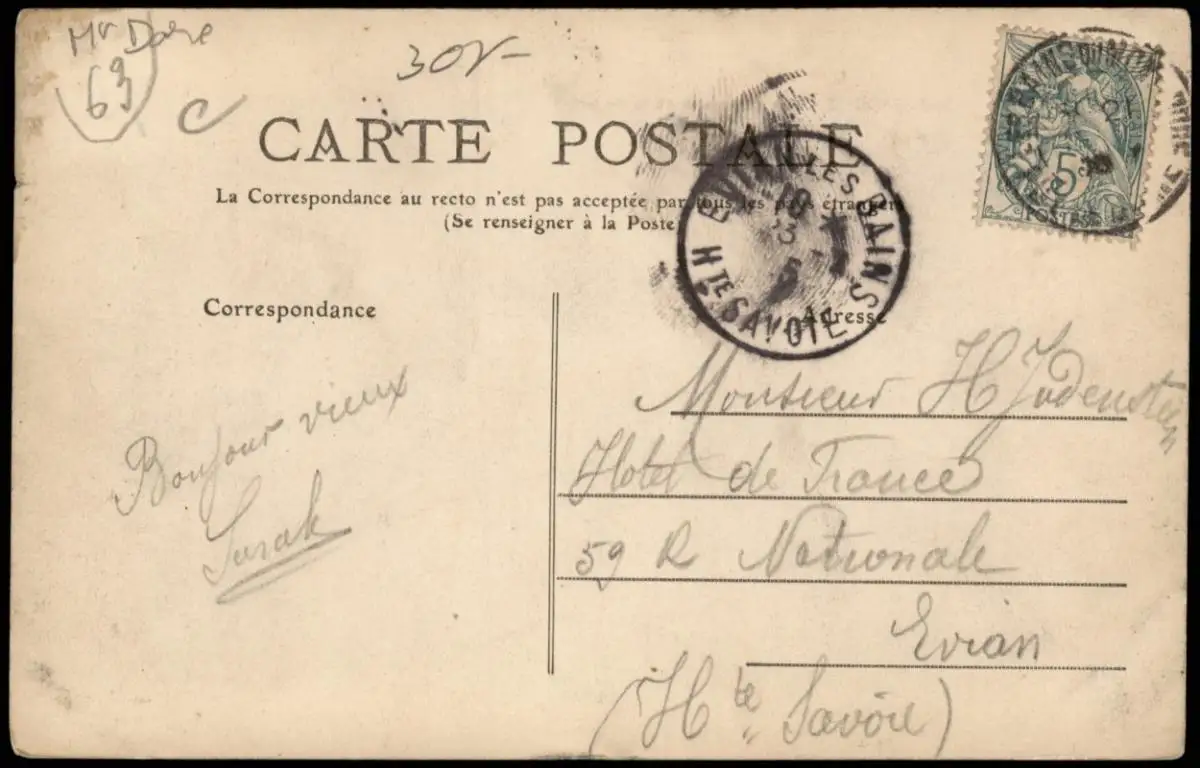 Mr Dore
63
30F-
CARTE POSTALE
La Correspondance au recto n'est pas acceptée par tous les pays étrangers
(Se renseigner à la Poste)
EVIAN LES BAINS
Hte SAVOIE
5
POSTES
Correspondance
Adresse
Bonjour vieux
Monsieur H Judenstein
Hotel de France
59 R Nationale
Evian
(Hte Savoie)